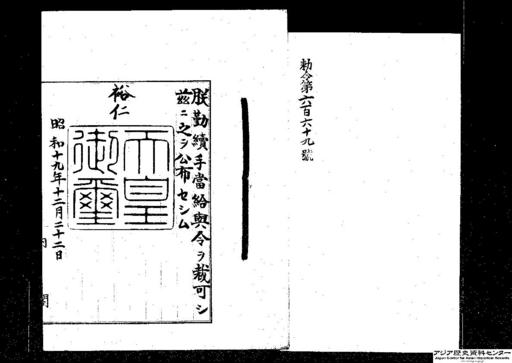 勅令第六百六十九號
朕勤續手當給與令ヲ裁可シ
茲ニ之ヲ公布セシム
裕仁
天皇
御璽
昭和十九年十二月二十二日
内閣
アジア歴史資料センター
Japan Center for Asian Historical Records